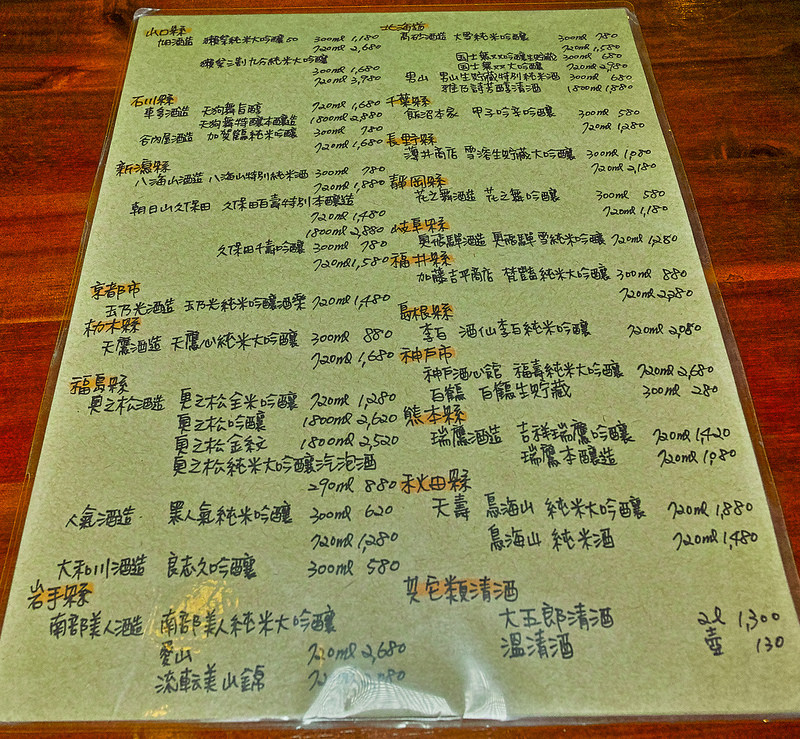 山口縣
旭酒造 獺祭純米大吟釀50 300ml 1,180
720ml 2,680
獺祭三割九分純米大吟釀
300ml 1,680
720ml 3,980
石川縣
車多酒造 天狗舞旨醇 720ml 1,680
天狗舞特釀本釀造 1800ml 2,880
谷內屋酒造 加賀鶴純米吟釀 300ml 780
720ml 1,680
新潟縣
八海山酒造 八海山特別純米酒 300ml 780
720ml 1,880
朝日山久保田 久保田百壽特別本釀造
720ml 1,480
1800ml 2,880
久保田千壽吟釀 300ml 780
720ml 1,580
京都市
玉乃光酒造 玉乃光純米吟釀酒樂 720ml 1,480
栃木縣
天鷹酒造 天鷹心純米大吟釀 300ml 880
720ml 1,680
福島縣
奧之松酒造 奧之松全米吟釀 720ml 1,280
奧之松吟釀 1800ml 2,620
奧之松金紋 1800ml 2,520
奧之松純米大吟釀汽泡酒
290ml 880
人氣酒造 黑人氣純米吟釀 300ml 620
720ml 1,280
大和川酒造 良志久吟釀 300ml 580
岩手縣
南部美人酒造 南部美人純米大吟釀
愛山 720ml 2,680
流転美山錦
北海道
高砂酒造 大雪純米吟釀 300ml 780
720ml 1,580
国士無双吟釀生貯藏 300ml 680
国士無双大吟釀 720ml 2,980
男山 男山生貯藏特別純米酒 300ml 680
雅乃詩芳醇清酒 1800ml 1,880
千葉縣
飯沼本家 甲子吟辛吟釀 300ml 580
720ml 1,280
長野縣
薄井商店 雪溶生貯藏大吟釀 300ml 1,080
720ml 2,180
靜岡縣
花之舞酒造 花之舞吟釀 300ml 580
720ml 1,180
岐阜縣
奧飛驒酒造 奧飛驒雪純米吟釀 720ml 1,280
福井縣
加藤吉平商店 梵艶純米大吟釀 300ml 880
720ml 2,280
島根縣
李白 酒仙李白純米吟釀 720ml 2,080
神戶市
神戶酒心館 福壽純米大吟釀 720ml 2,680
白鶴 白鶴生貯藏 300ml 280
熊本縣
瑞鷹酒造 吉祥瑞鷹吟釀 720ml 1,420
瑞鷹本釀造 720ml 1,080
秋田縣
天壽 鳥海山 純米大吟釀 720ml 1,880
鳥海山 純米酒 720ml 1,480
其它類清酒
大五郎清酒 2l 1,300
溫清酒 壺 130